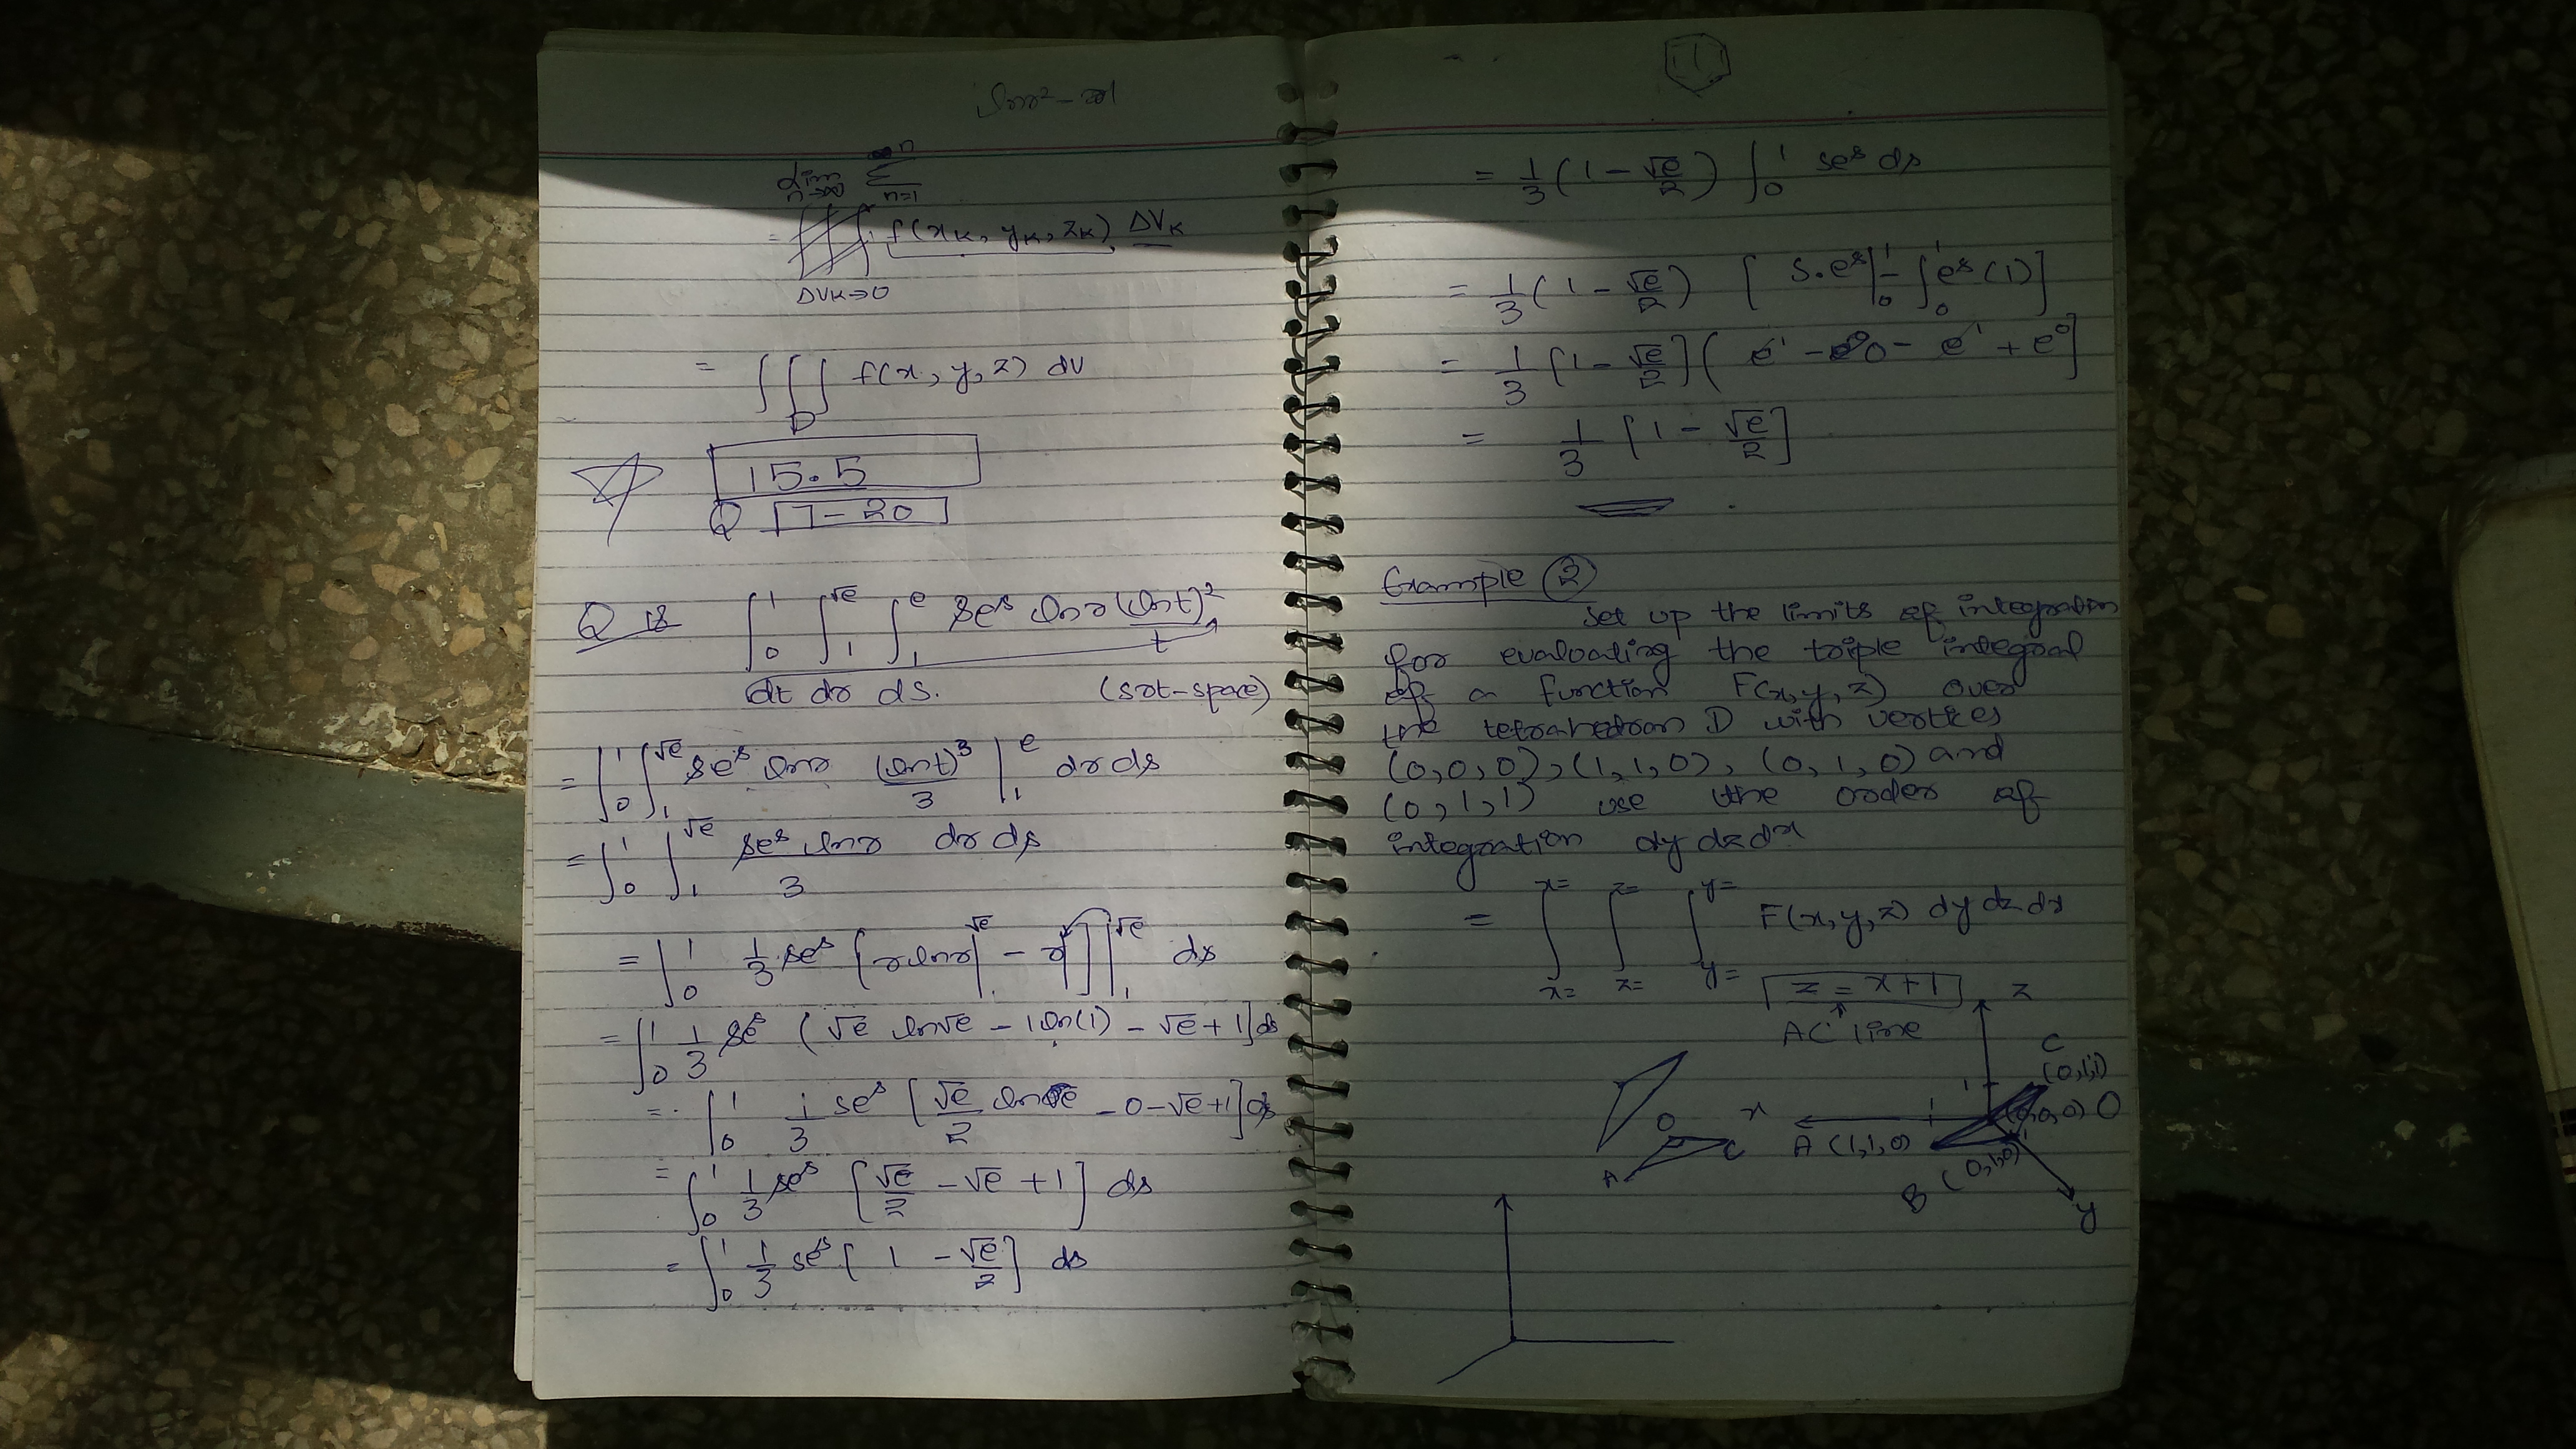 lim n→∞ Σ n n=1
= f(xₖ, yₖ, zₖ) ΔVₖ
ΔVₖ→0
= ∫∫∫ f(x, y, z) dV
D
15.5
Q 7-20
Q 18 ∫₀¹ ∫₁^√e ∫₁^e se^s ln r (ln t)²/t
dt dr ds. (srt-space)
= ∫₀¹ ∫₁^√e se^s ln r (ln t)³/3 |₁^e dr ds
= ∫₀¹ ∫₁^√e se^s ln r/3 dr ds
= ∫₀¹ 1/3 se^s [r ln r|^√e - r]]|₁^√e ds
= ∫₀¹ 1/3 se^s (√e ln√e - 1 ln(1) - √e + 1] ds
= ∫₀¹ 1/3 se^s [√e/2 ln e - 0 - √e + 1] ds
= ∫₀¹ 1/3 se^s [√e/2 - √e + 1] ds
= ∫₀¹ 1/3 se^s [1 - √e/2] ds
11
= 1/3 (1 - √e/2) ∫₀¹ se^s ds
= 1/3 (1 - √e/2) [s.e^s|₀¹ - ∫₀¹ e^s (1)]
= 1/3 [1 - √e/2] (e¹ - 0 - e¹ + e⁰]
= 1/3 [1 - √e/2]
Example ②
Set up the limits of integration
for evaluating the triple integral
of a function F(x, y, z) over
the tetrahedron D with vertices
(0,0,0), (1,1,0), (0,1,0) and
(0,1,1) use the order of
integration dy dz dx
= ∫ x= x= ∫ z= z= ∫ y= y= F(x, y, z) dy dz dx
z = x+1
AC line
z
C
(0,1,1)
1
x
1
(0,0,0) O
O
C
A
A (1,1,0)
B (0,1,0)
y